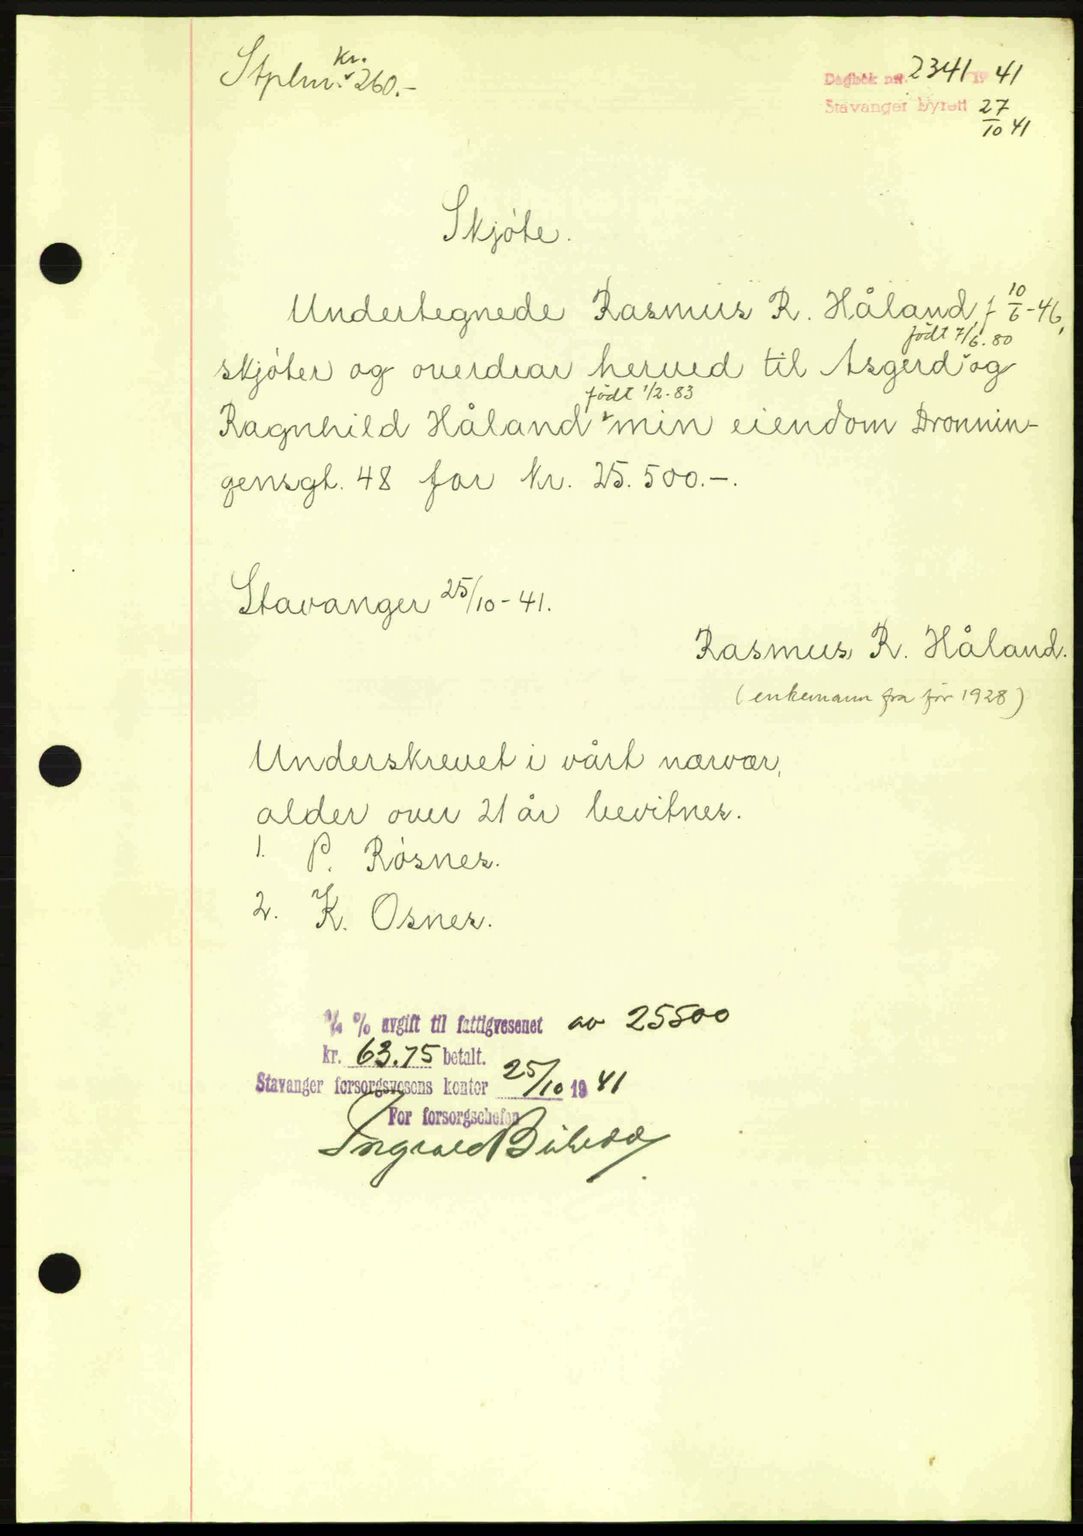 Stplm. kr. 260.-
Dagbok nr. 2341 19 41
Stavanger byrett 27/10 41
Skjøte.
Undertegnede Rasmus R. Håland, f 10/6-46,
født 7/6.80
skjøter og overdrar herved til Asgerd og
født 1/2.83
Ragnhild Håland min eiendom Dronnin-
gensgt. 48 for kr. 25.500.-.
Stavanger 25/10-41.
Rasmus R. Håland.
(enkemann fra før 1928)
Underskrevet i vårt nærvær,
alder over 21 år bevitnes.
1. P. Røsnes.
2. K. Osnes.
1/4 % avgift til fattigvesenet av 25500
kr. 63.75 betalt.
Stavanger forsorgsvesens kontor 25/10 19 41
For forsorgschefen
Ingvald